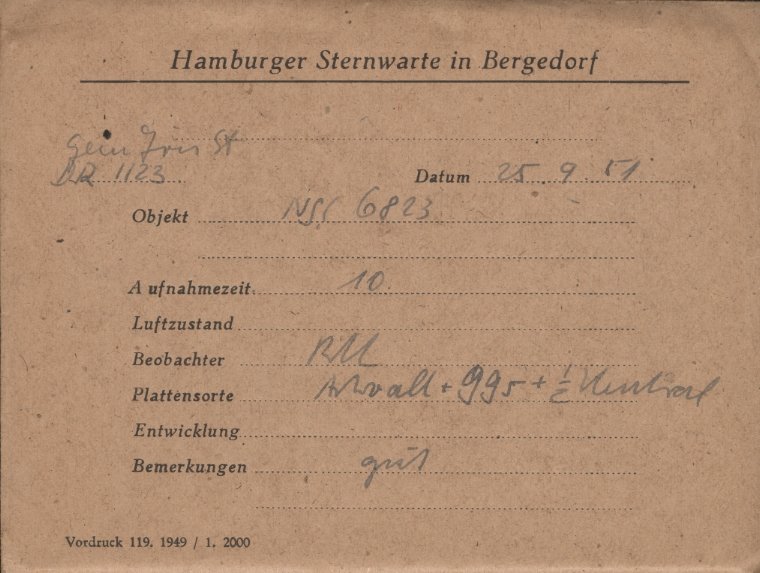 Hamburger Sternwarte in Bergedorf
DR 1123
Datum 25. 9. 51
Objekt NGC 6823
Aufnahmezeit 10
Luftzustand
Beobachter
Plattensorte + 99r + ½ Neutral
Entwicklung
Bemerkungen gut
Vordruck 119. 1949 / 1. 2000